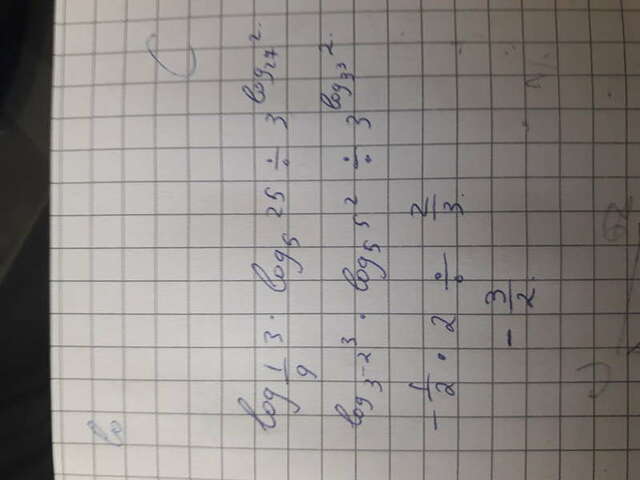 lo
C
log_{\frac{1}{9}} 3 · log_5 25 ÷ 3^{log_{27} 2}.
log_{3^{-2}} 3 · log_5 5^2 ÷ 3^{log_{3^3} 2}.
-\frac{1}{2} · 2 ÷ \frac{2}{3}.
-\frac{3}{2}.